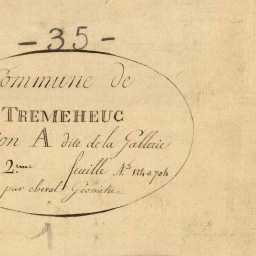 - 35 -
Commune de
TREMEHEUC
ion A dite de la Gallerie
2.eme feuille N.os 114 a 704
par cheval Géomètre.
1